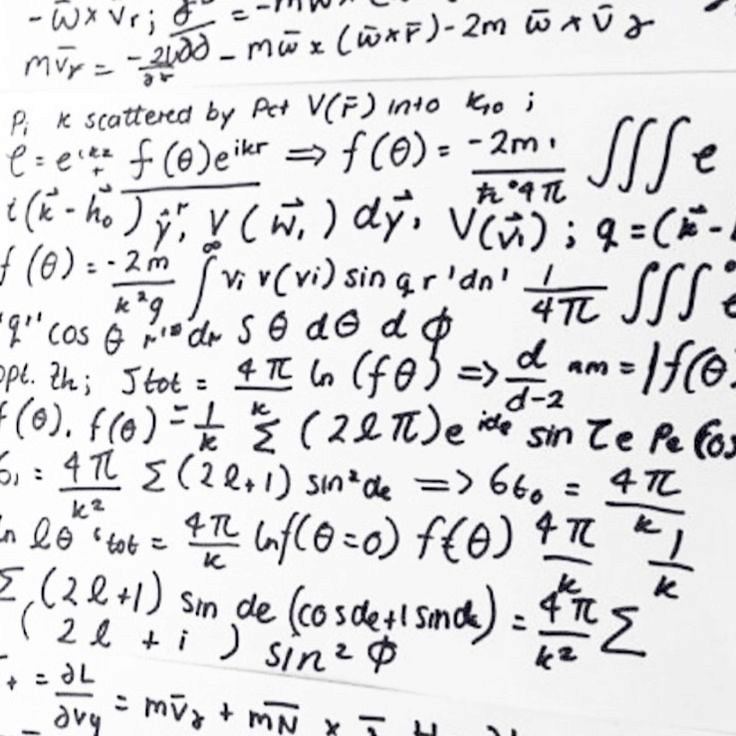 - ω̄ × v̄r ;
mv̄r = -∂U/∂r - mω̄ × (ω̄×r̄) - 2m ω̄ × v̄ γ
Pi k scattered by Pct V(r̄) into k10 ;
e = e^ikz + f(θ)e^ikr ⇒ f(θ) = -2m / ħ°4π ∭ e
i(k⃗ - h⃗o) r̂, V(w⃗,) dy⃗, V(v⃗i) ; q = (k⃗ -
f(θ) = -2m / k²g ∫ vi v(vi) sin q r'dn' 1 / 4π ∭ e
"q" cos θ r'² dr S θ dθ d ϕ
opt. Th; Jtot = 4π / k ln (fθ) => d / d-2 am = |f(θ
f(θ). f(θ) = 1 / k Σ (2lπ)e^ide sin Te Pe Cos
σ1 = 4π / k² Σ (2l+1) sin²de => 660 = 4π / k
ln lθ 'tot = 4π / k lnf(θ=0) f(θ) 4π / k 1 / k
Σ (2l+1) sin de (cosde+1sinde) = 4π / k² Σ
(2l + i) sin² ϕ
+ = ∂L / ∂vg = mv̄γ + mN̄ ×